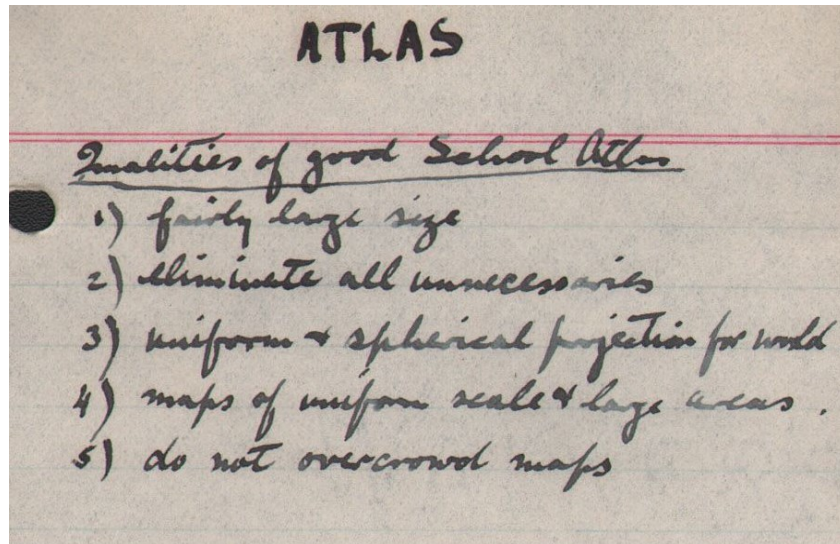 ATLAS
Qualities of good School Atlas
1) fairly large size
2) eliminate all unnecessaries
3) uniform & spherical projection for world
4) maps of uniform scale & large areas.
5) do not overcrowd maps